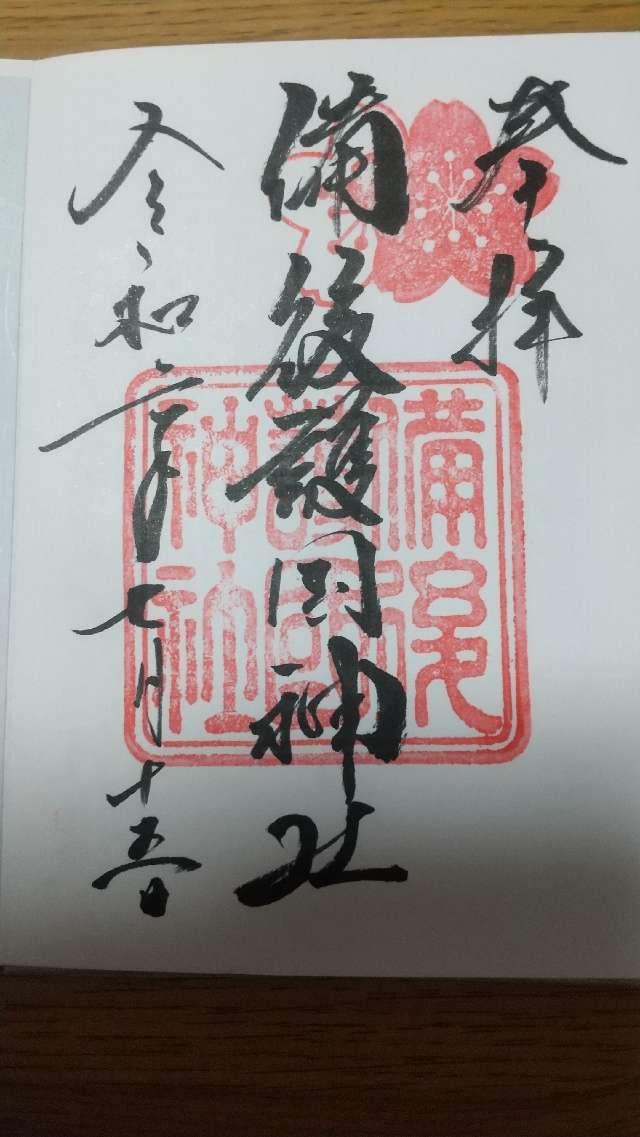 奉拝
備後護国神社
令和 年七月十五日
備後
護國
神社